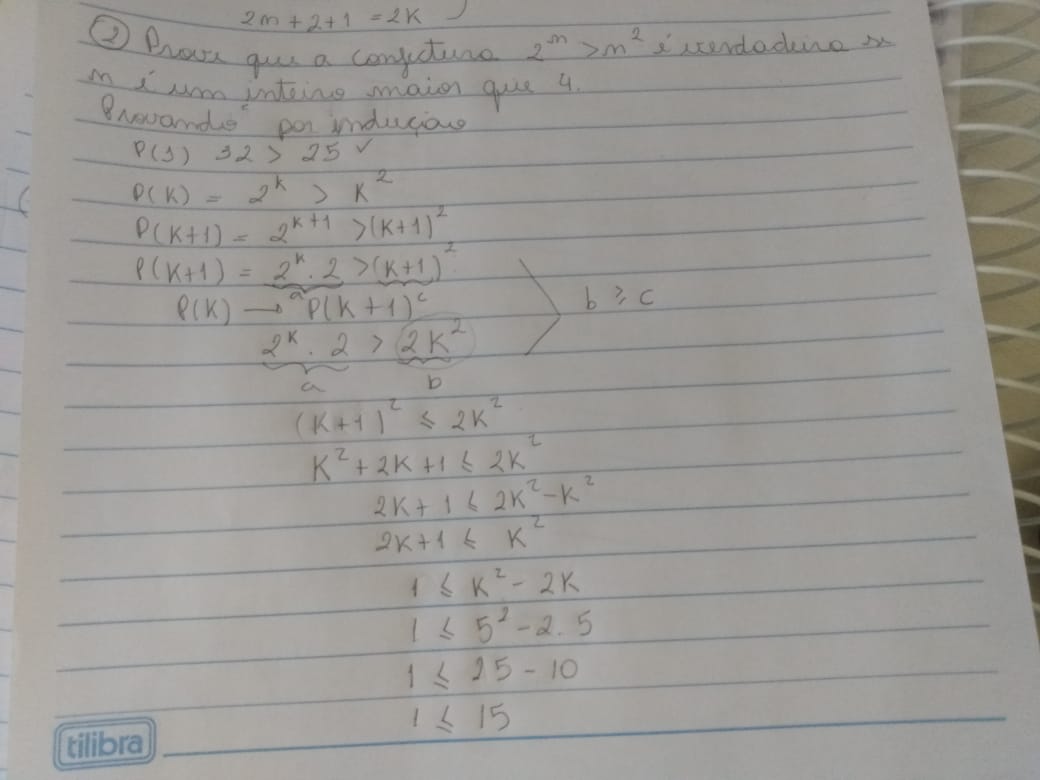 2m + 2 + 1 = 2K
② Prove que a conjectura 2^m > m^2 é verdadeira se
m é um inteiro maior que 4.
Provando por indução
P(5) 32 > 25 ✓
P(K) = 2^K > K^2
P(K+1) = 2^K+1 > (K+1)^2
P(K+1) = 2^K . 2 > (K+1)^2
a c
P(K) → P(K+1)
b ≥ c
2^K . 2 > 2K^2
a b
(K+1)^2 ≤ 2K^2
K^2 + 2K + 1 ≤ 2K^2
2K + 1 ≤ 2K^2 - K^2
2K + 1 ≤ K^2
1 ≤ K^2 - 2K
1 ≤ 5^2 - 2.5
1 ≤ 25 - 10
1 ≤ 15
tilibra